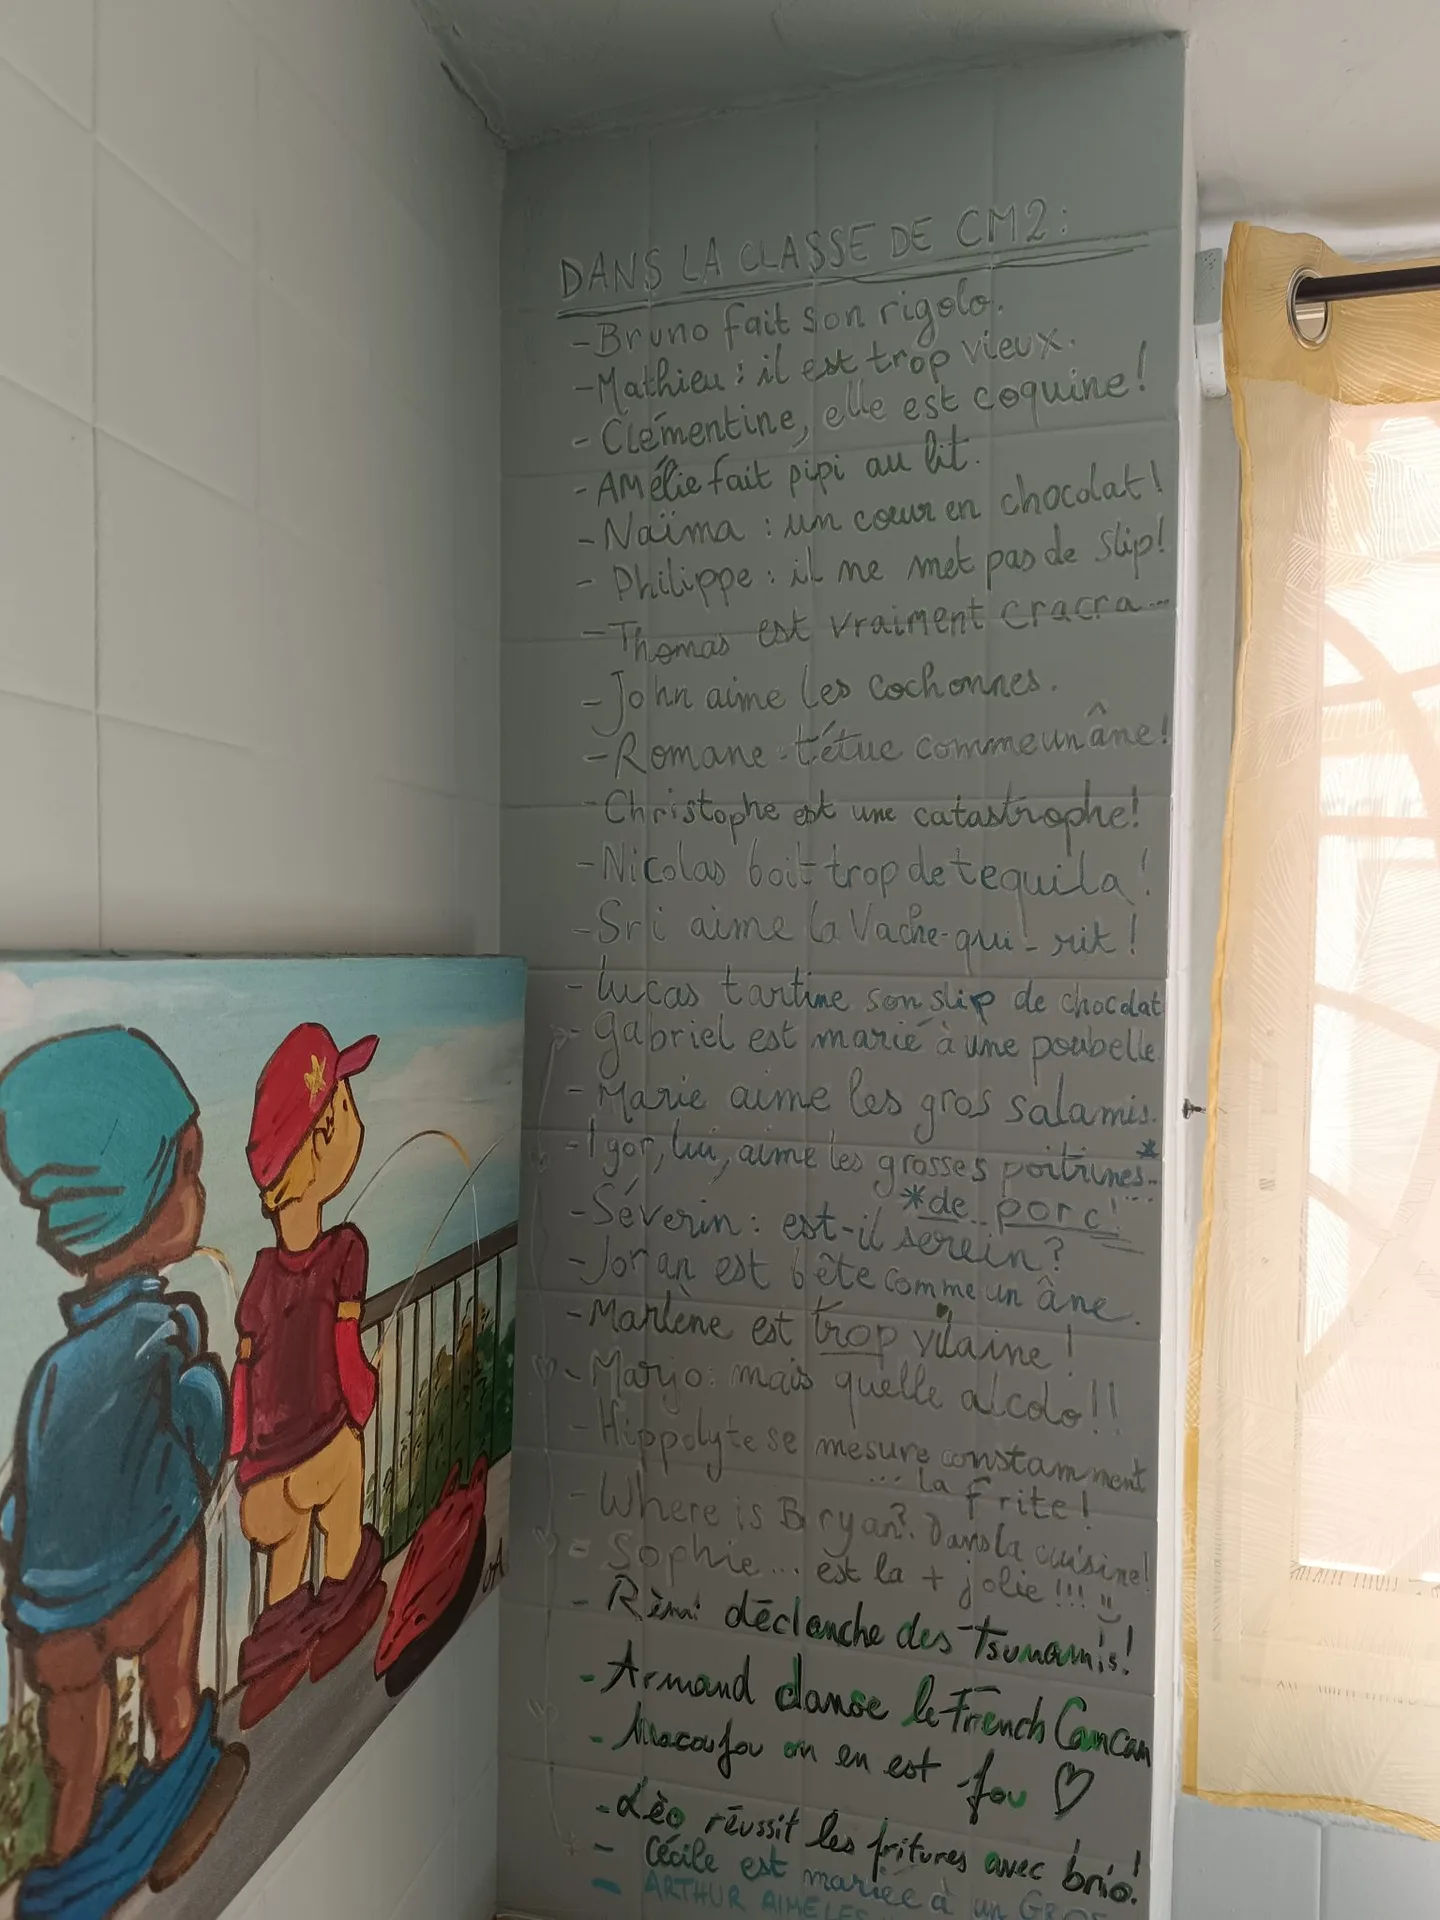 DANS LA CLASSE DE CM2:
-Bruno fait son rigolo.
-Mathieu : il est trop vieux.
- Clémentine, elle est coquine!
- Amélie fait pipi au lit.
- Naïma : un cœur en chocolat!
- Philippe : il ne met pas de slip!
-Thomas est vraiment cracra...
-John aime les cochonnes.
-Romane : têtue comme un âne!
-Christophe est une catastrophe!
-Nicolas boit trop de tequila!
-Sri aime la Vache-qui-rit!
- Lucas tartine son slip de chocolat
- Gabriel est marié à une poubelle.
- Marie aime les gros salamis.
- Igor, lui, aime les grosses poitrines...*
*de porc!
-Séverin : est-il serein?
-Joran est bête comme un âne.
-Marlène est trop vilaine!
- Marjo: mais quelle alcolo!!
- Hippolyte se mesure constamment
... la frite!
- Where is Bryan? Dans la cuisine!
- Sophie... est la + jolie!!!
- Rémi déclanche des Tsunamis!
- Armand danse le French Cancan
- Macoufou on en est fou ♡
- Léo réussit les fritures avec brio!
- Cécile est mariée à un GROS
- ARTHUR AIME LES